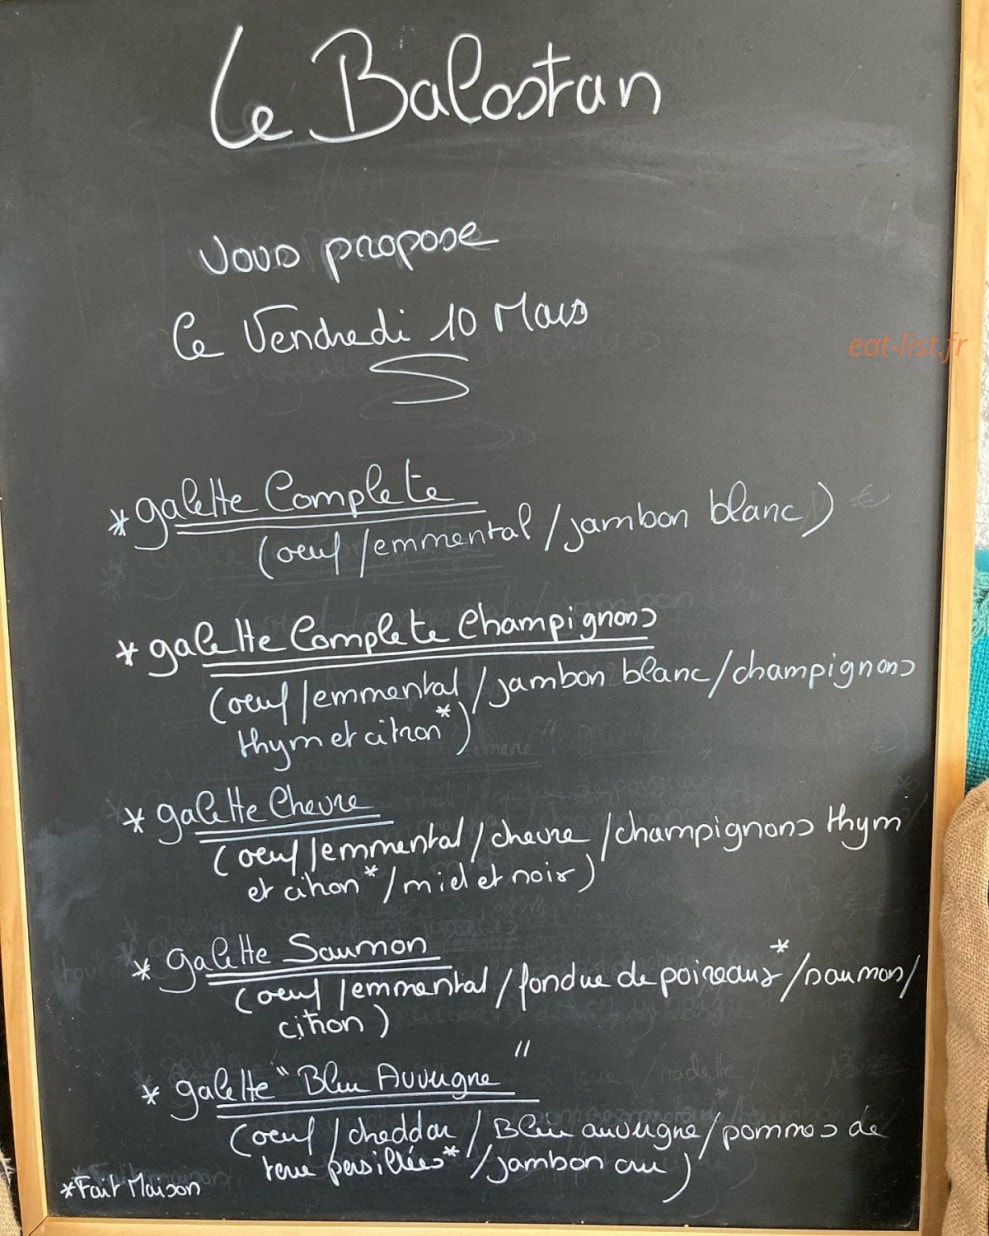 Le Balostan
vous propose
Ce Vendredi 10 Mars
eat-list.fr
*galette Complete
(oeuf/emmental/jambon blanc)
*galette Complete Champignons
(oeuf/emmental/jambon blanc/champignons
thym et citron*)
*galette Chevre
(oeuf/emmental/chevre/champignons thym
et citron*/miel et noix)
*galette Saumon
(oeuf/emmental/fondue de poireaux*/saumon/
citron)
*galette "Bleu Auvergne"
(oeuf/cheddar/Bleu auvergne/pommes de
terre persillées*/jambon cru)
*Fait Maison